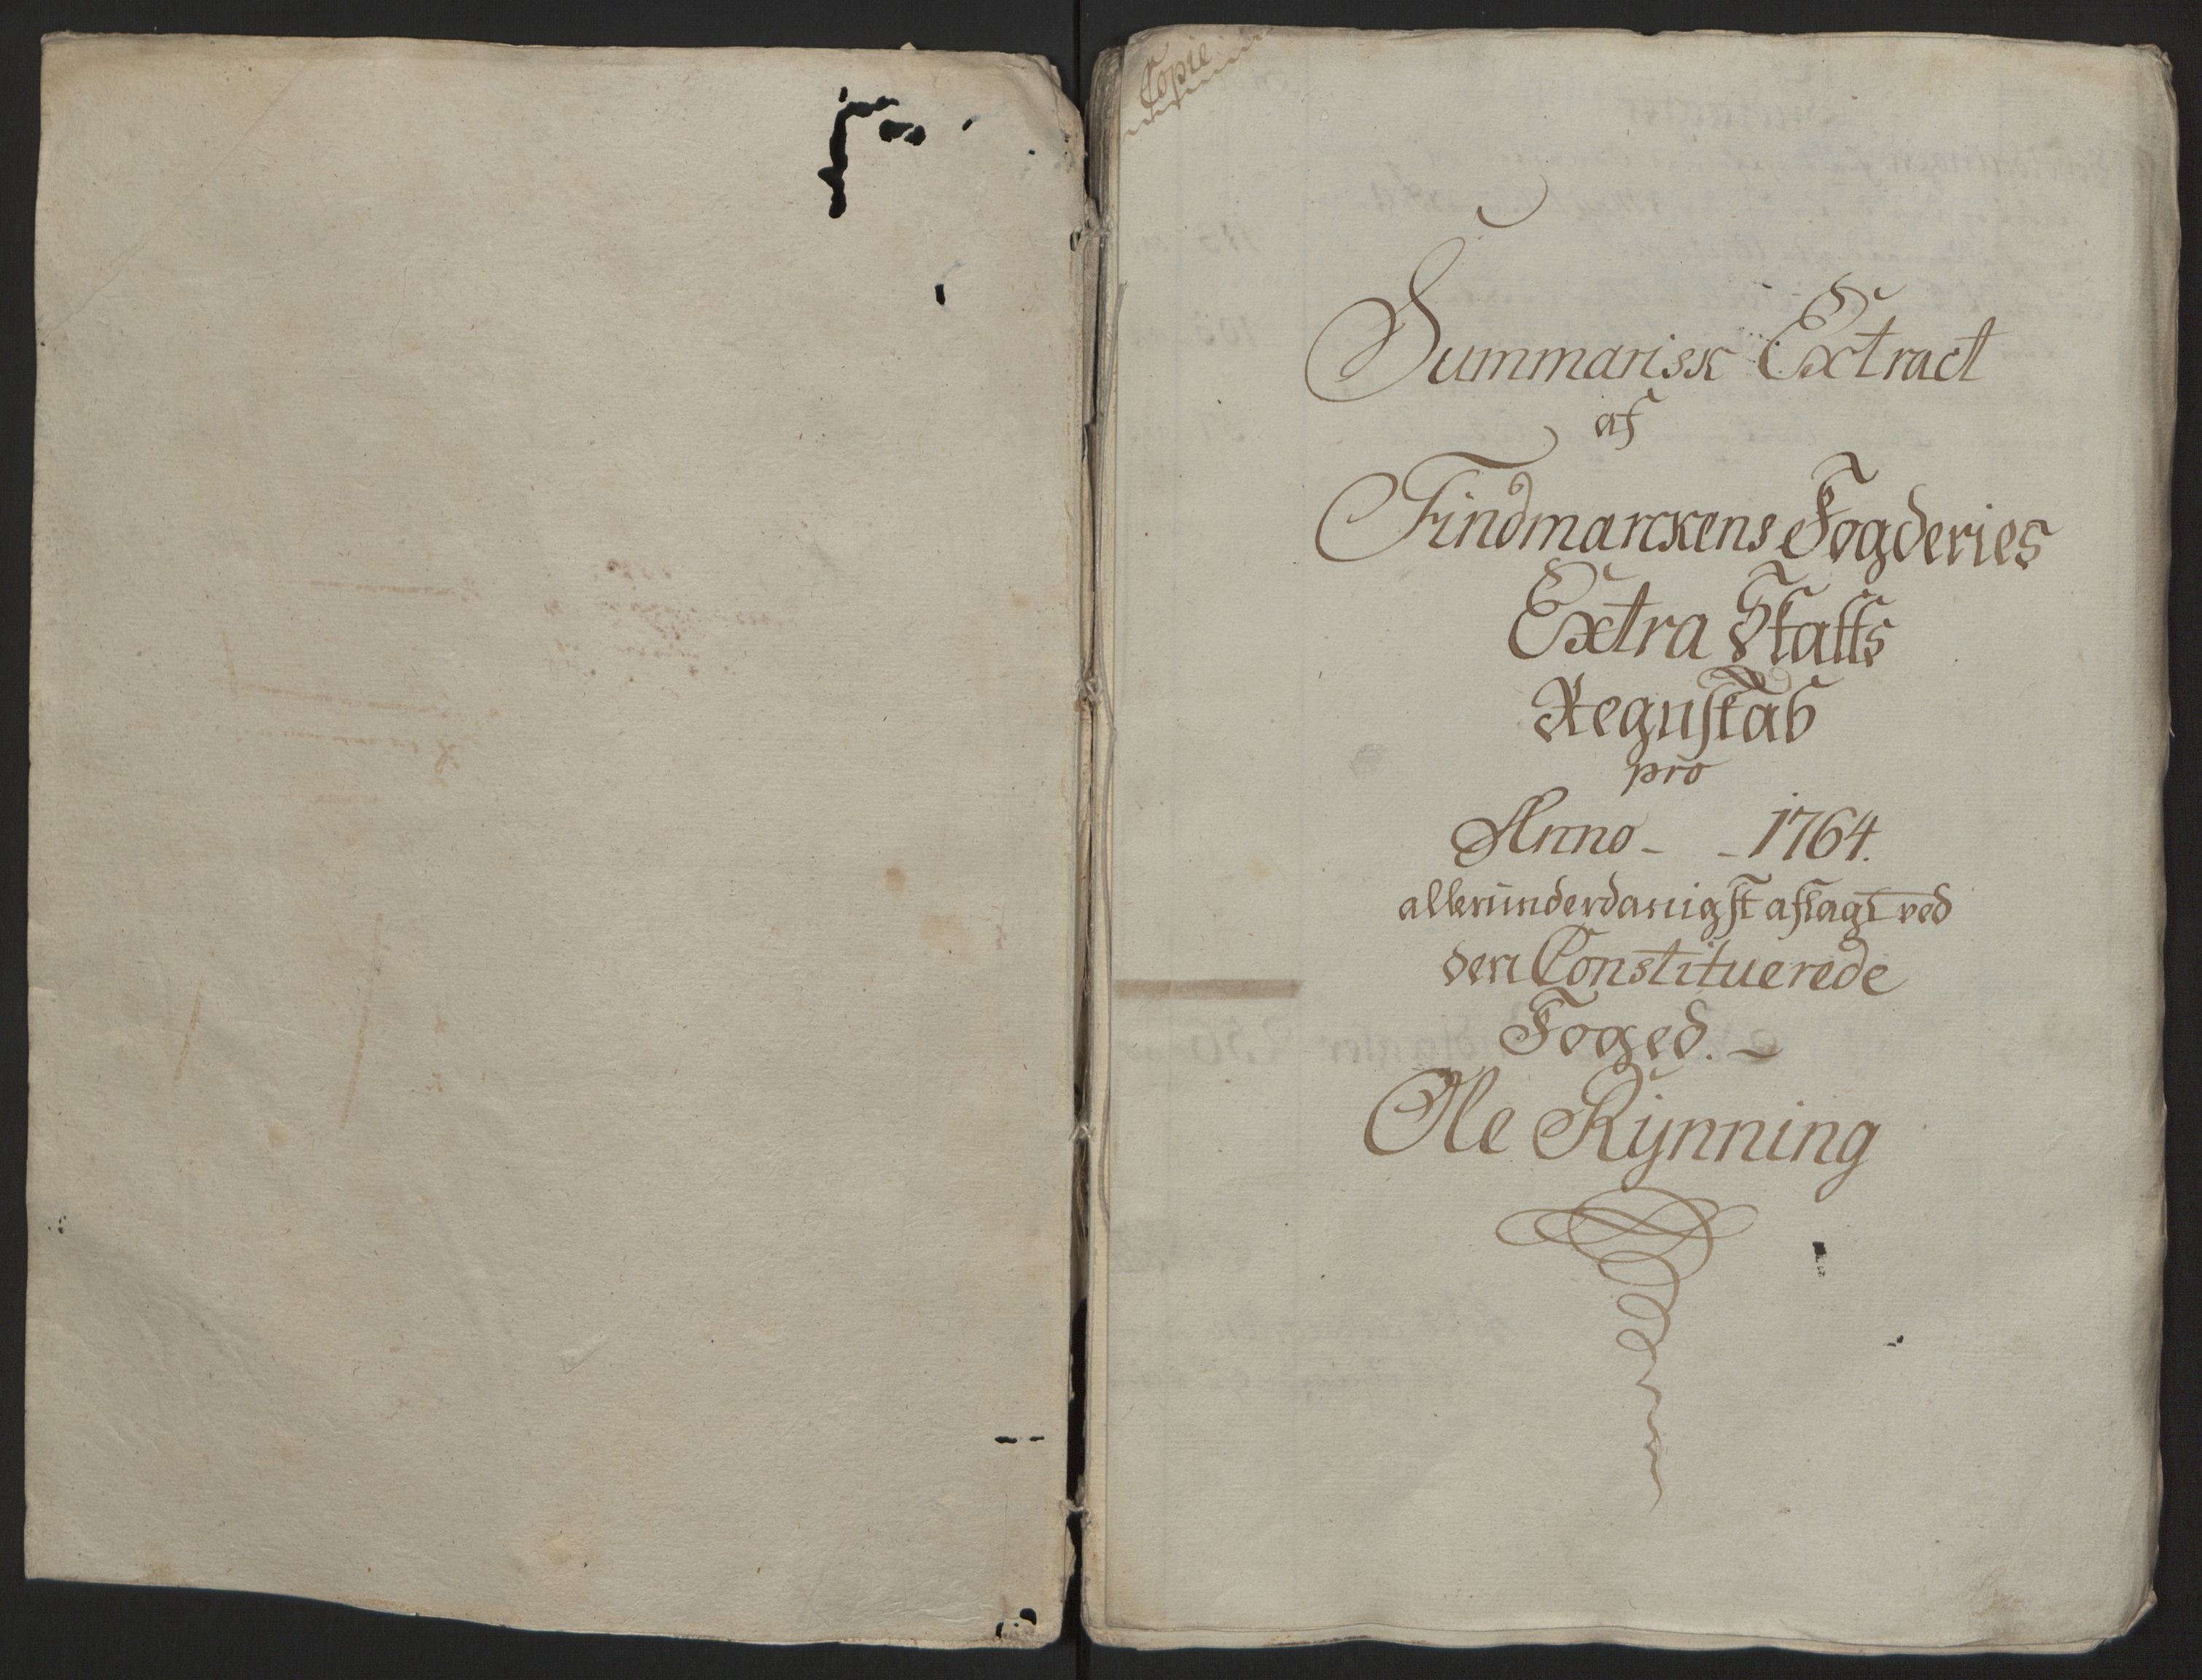 Copie
Summarisk Extract
af
Findmarckens Fogderies
Extra Skatts
Regnskab
pro
Anno - - 1764.
allerunderdanigst aflagt ved
den Constituerede
Foged. -
Ole Rynning